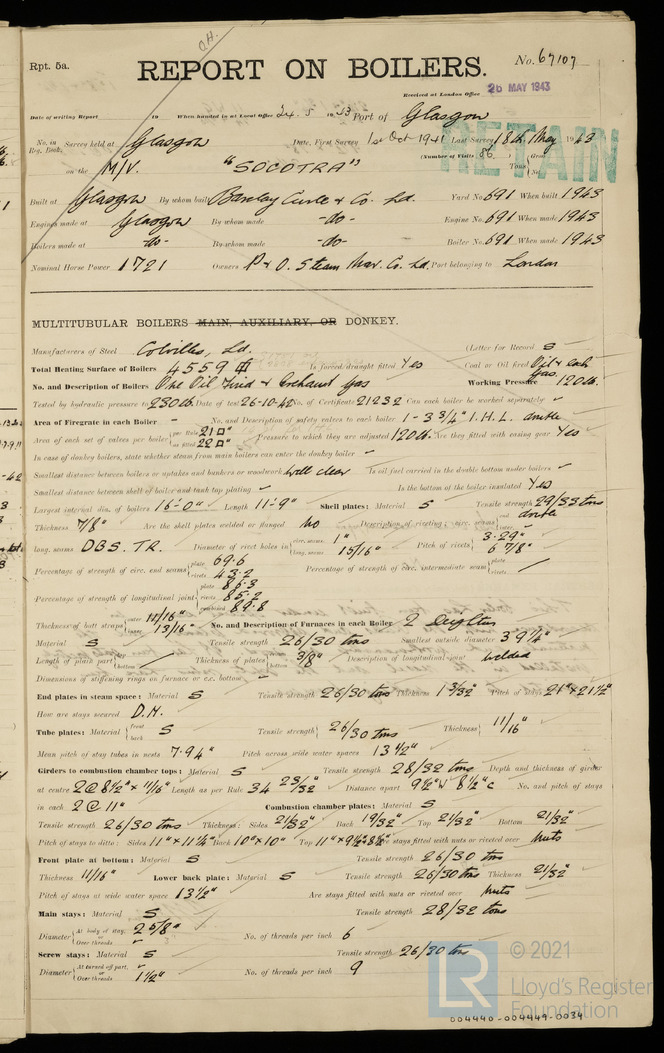 Rpt. 5a.
REPORT ON BOILERS.
No. 67107
Received at London Office 26 MAY 1943
Date of writing Report 19 When handed in at Local Office 24. 5 19 43 Port of Glasgow
No. in Reg. Book. Survey held at Glasgow Date, First Survey 1st Oct 1941 Last Survey 18th May 1943
RETAIN
on the M/V. "SOCOTRA" (Number of Visits 86) Gross Tons Net
Built at Glasgow By whom built Barclay Curle & Co. Ld. Yard No. 691 When built 1943
Engines made at Glasgow By whom made -do- Engine No. 691 When made 1943
Boilers made at -do- By whom made -do- Boiler No. 691 When made 1943
Nominal Horse Power 1721 Owners P & O. Steam Nav. Co. Ld. Port belonging to London
MULTITUBULAR BOILERS MAIN, AUXILIARY, OR DONKEY.
Manufacturers of Steel Colvilles, Ld. (Letter for Record S
Total Heating Surface of Boilers 4559 Is forced draught fitted Yes Coal or Oil fired Oil & exh Gas.
No. and Description of Boilers One Oil Fired & Exhaust Gas Working Pressure 120 lb.
Tested by hydraulic pressure to 230 lb. Date of test 26-10-42 No. of Certificate 21232 Can each boiler be worked separately
Area of Firegrate in each Boiler No. and Description of safety valves to each boiler 1 - 3 3/4" I.H.L. double
Area of each set of valves per boiler per Rule 21 □" as fitted 22 □" Pressure to which they are adjusted 120 lb. Are they fitted with easing gear Yes
In case of donkey boilers, state whether steam from main boilers can enter the donkey boiler
Smallest distance between boilers or uptakes and bunkers or woodwork Well clear Is oil fuel carried in the double bottom under boilers
Smallest distance between shell of boiler and tank top plating Is the bottom of the boiler insulated Yes
Largest internal dia. of boilers 16'-0" Length 11'-9" Shell plates: Material S Tensile strength 29/33 tons
Thickness 7/8" Are the shell plates welded or flanged No Description of riveting: circ. seams end double inter.
long. seams DBS. TR. Diameter of rivet holes in circ. seams 1" long. seams 15/16" Pitch of rivets 3.29" 6 7/8"
Percentage of strength of circ. end seams plate 69.6 rivets 43.2 Percentage of strength of circ. intermediate seam plate rivets
Percentage of strength of longitudinal joint plate 86.3 rivets 85.2 combined 89.8
Thickness of butt straps outer 11/16" inner 13/16" No. and Description of Furnaces in each Boiler 2 Deighton
Material S Tensile strength 26/30 tons Smallest outside diameter 3' 9 1/4"
Length of plain part top bottom Thickness of plates bottom 3/8" Description of longitudinal joint welded
Dimensions of stiffening rings on furnace or c.c. bottom
End plates in steam space: Material S Tensile strength 26/30 tons Thickness 1 3/32" Pitch of stays 21" x 21 1/2"
How are stays secured D.N.
Tube plates: Material front back S Tensile strength 26/30 tons Thickness 11/16"
Mean pitch of stay tubes in nests 7.94" Pitch across wide water spaces 13 1/2"
Girders to combustion chamber tops: Material S Tensile strength 28/32 tons Depth and thickness of girder
at centre 2 @ 8 1/2" x 11/16" Length as per Rule 34 23/32" Distance apart 9 1/2" W 8 1/2" C No. and pitch of stays
in each 2 @ 11" Combustion chamber plates: Material S
Tensile strength 26/30 tons Thickness: Sides 21/32" Back 19/32" Top 21/32" Bottom 21/32"
Pitch of stays to ditto: Sides 11" x 11 1/4" Back 10" x 10" Top 11" x 9 1/2" & 8 1/2" Are stays fitted with nuts or riveted over Nuts
Front plate at bottom: Material S Tensile strength 26/30 tons
Thickness 11/16" Lower back plate: Material S Tensile strength 26/30 tons Thickness 21/32"
Pitch of stays at wide water space 13 1/2" Are stays fitted with nuts or riveted over Nuts
Main stays: Material S Tensile strength 28/32 tons
Diameter At body of stay, or Over threads 2 5/8" No. of threads per inch 6
Screw stays: Material S Tensile strength 26/30 tons
Diameter At turned off part, or Over threads 1 1/2" No. of threads per inch 9
© 2021
LR
Lloyd's Register
Foundation
004440-004449-0034